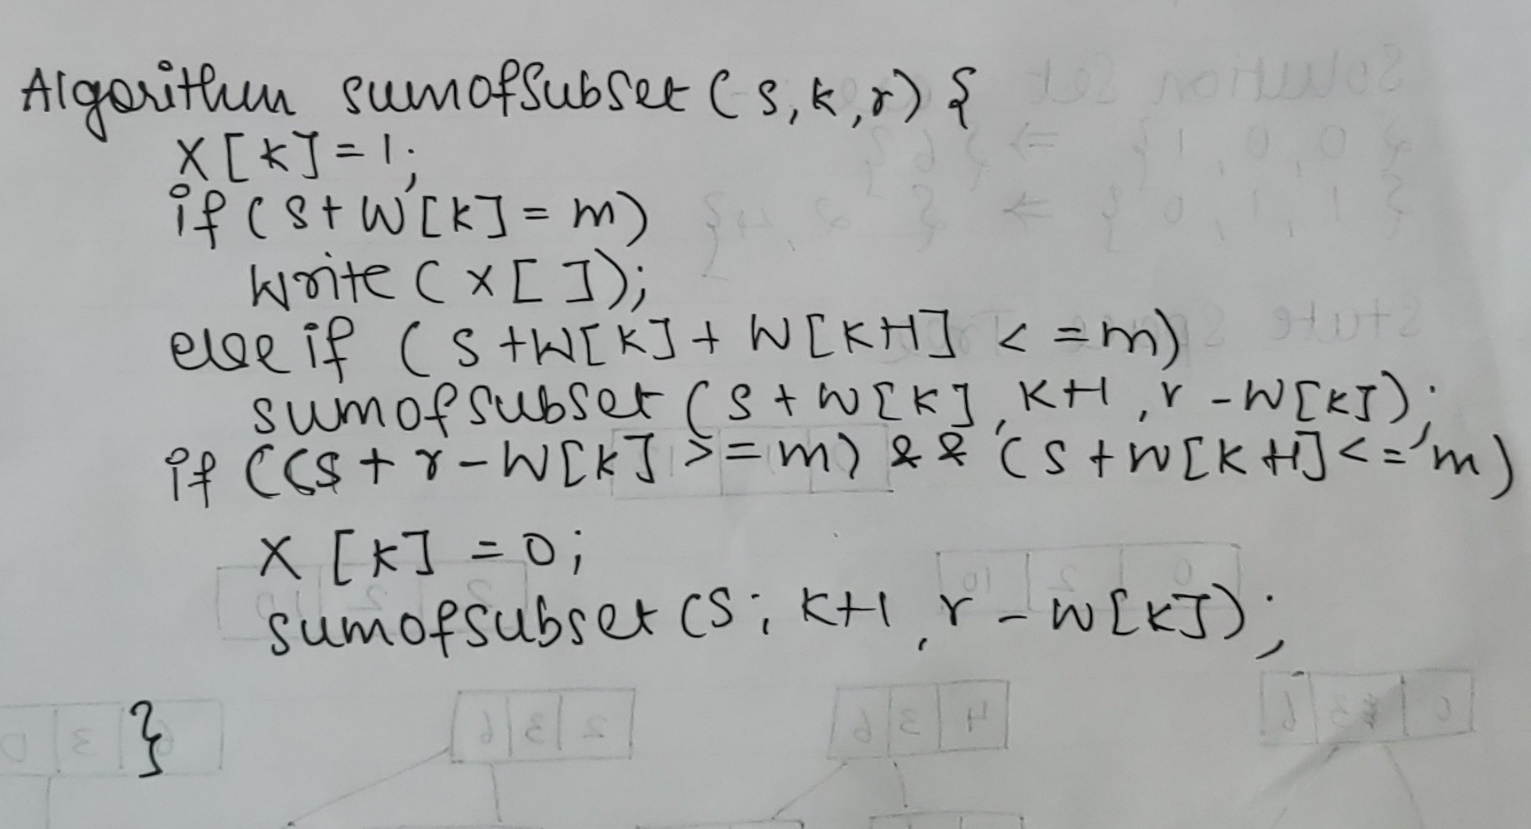 Algorithm sumofSubset (s,k,r) {
X[k]=1;
if (s+W[k]= m)
Write (x[ ]);
else if (s+W[k]+ W[k+1] <=m)
sumofsubset (s+w[k], k+1, r-W[k]);
if ((s+r-W[k] >=m) && (s+w[k+1]<=m)
X [k] =0;
sumofsubset (s; k+1, r-w[k]);
}